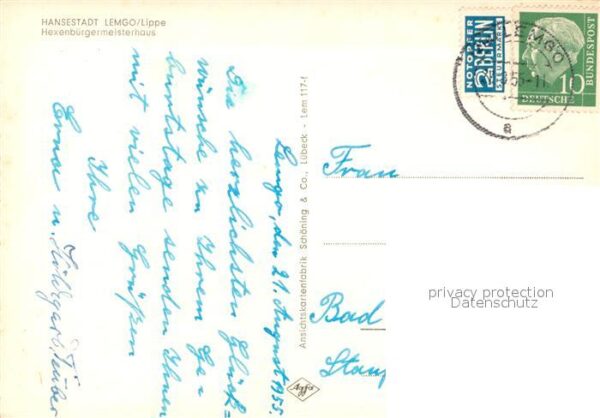 HANSESTADT LEMGO/Lippe
Hexenbürgermeisterhaus
NOTOPFER
2 BERLIN
STEUERMARKE
DEUTSCHE
BUNDESPOST
10
LEMGO
a
Lemgo, den 21. August 1955.
Die herzlichsten Glück=
wünsche zu Ihrem Ge=
burtstage senden Ihnen
mit vielen Grüßen
Ihre
Erna u. Hildegard
Ansichtskartenfabrik Schöning & Co., Lübeck - Lem 117-f
Agfa
Frau
Bad
privacy protection
Datenschutz